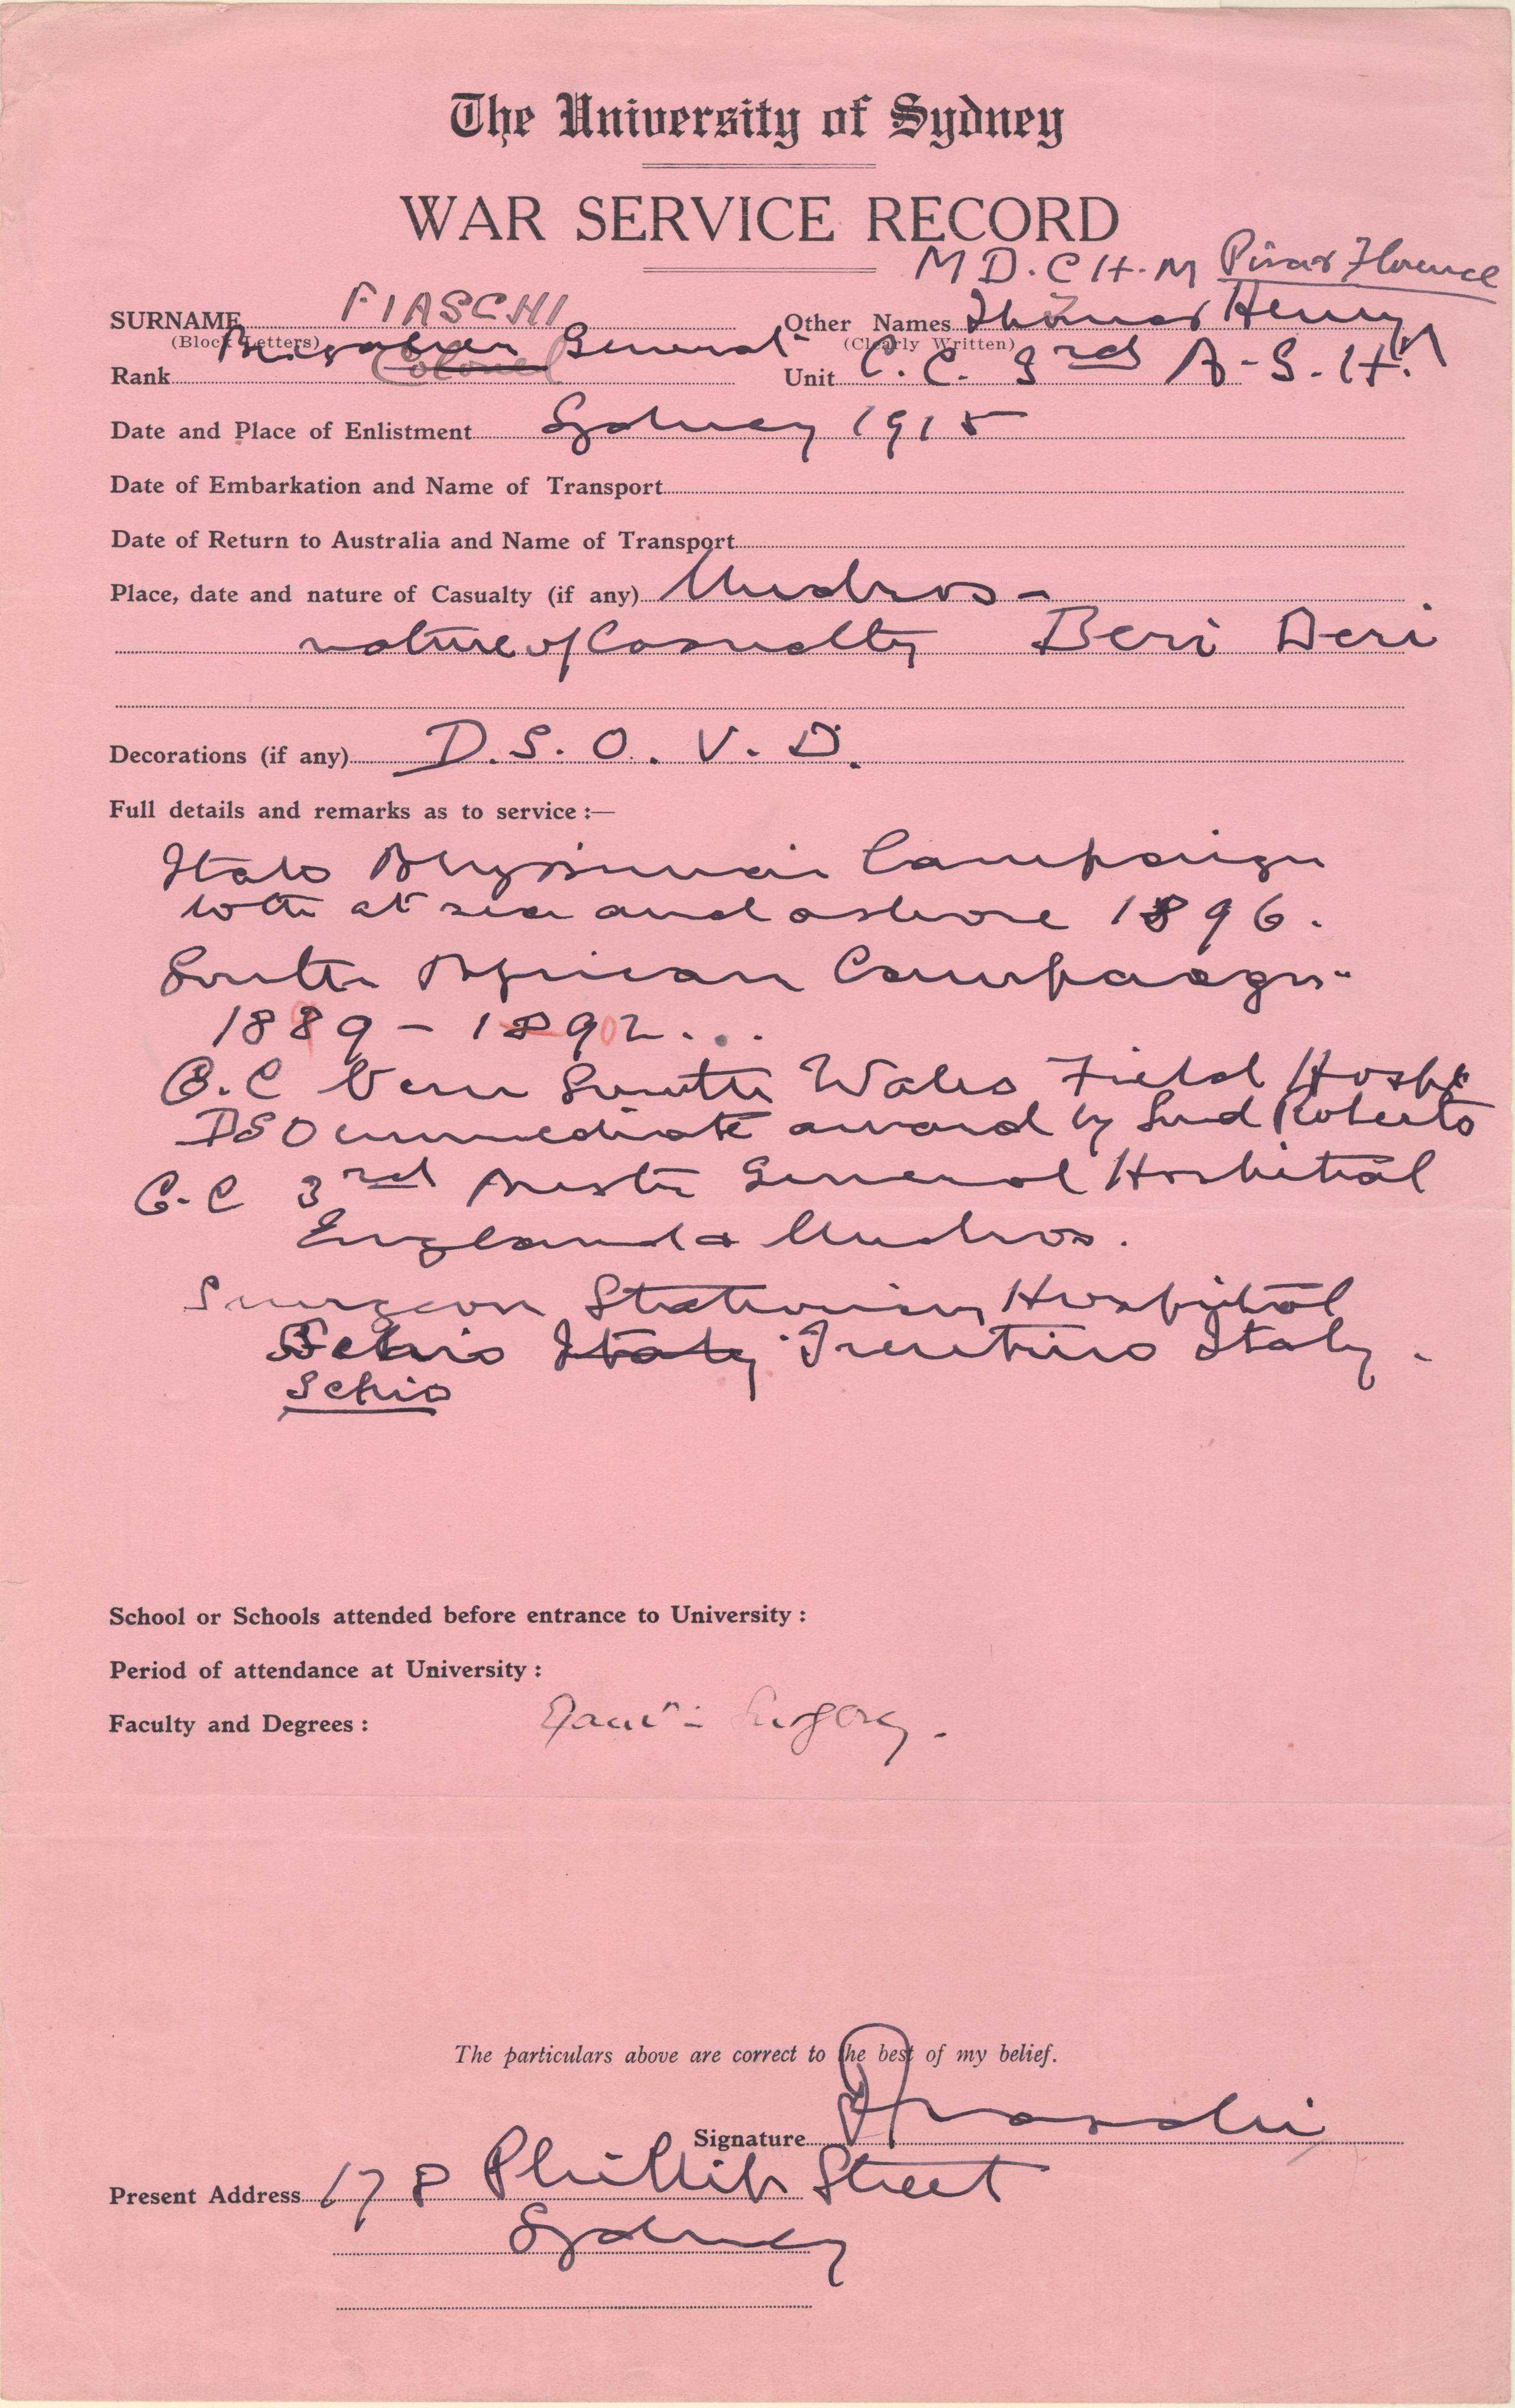 The University of Sydney
WAR SERVICE RECORD
M D. C H. M Pisa & Florence
SURNAME FIASCHI Other Names Thomas Henry
(Block Letters) (Clearly Written)
Brigadier General
Rank Colonel Unit C. C. 3rd A. G. H.
Date and Place of Enlistment Sydney 1915
Date of Embarkation and Name of Transport
Date of Return to Australia and Name of Transport
Place, date and nature of Casualty (if any) Mudros -
nature of Casualty Beri Beri
Decorations (if any) D. S. O. V. D.
Full details and remarks as to service :—
Italo Abyssinian Campaign
both at sea and ashore 1896.
South African Campaign
1889 - 1892...
O.C New South Wales Field Hosp
DSO immediate award by Lord Roberts
O.C 3rd Austr General Hospital
England & Mudros.
Surgeon Stationary Hospital
Schio Italy Trentino Italy.
Schio
School or Schools attended before entrance to University :
Period of attendance at University :
Faculty and Degrees : Exam'r: Surgery.
The particulars above are correct to the best of my belief.
Signature Fiaschi
Present Address 178 Phillip Street
Sydney